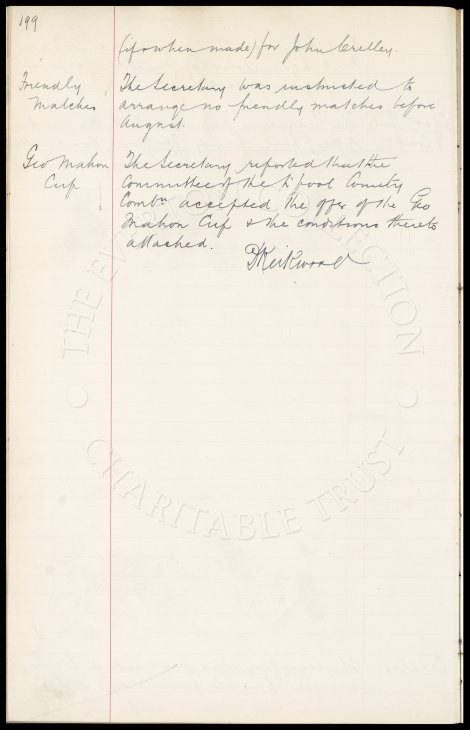 199
(if & when made) for John Crelley.
Friendly Matches
The Secretary was instructed to
arrange no friendly matches before
August.
Geo Mahon Cup
The Secretary reported that the
Committee of the L'pool County
Combn accepted the offer of the Geo
Mahon Cup & the conditions thereto
attached.
DKirkwood
THE EVERTON COLLECTION
CHARITABLE TRUST